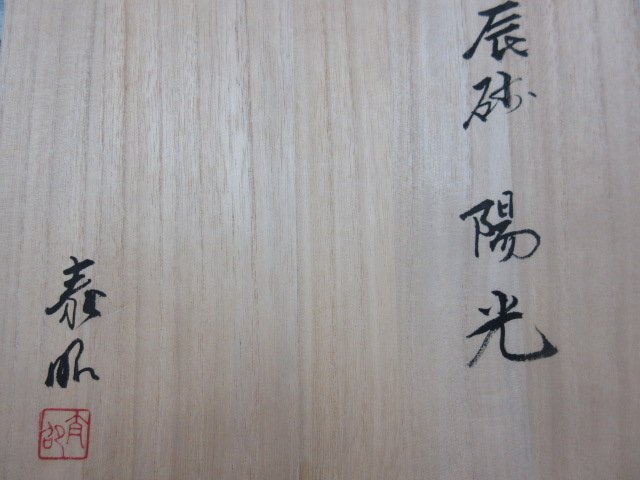 辰砂 陽光
泰昭